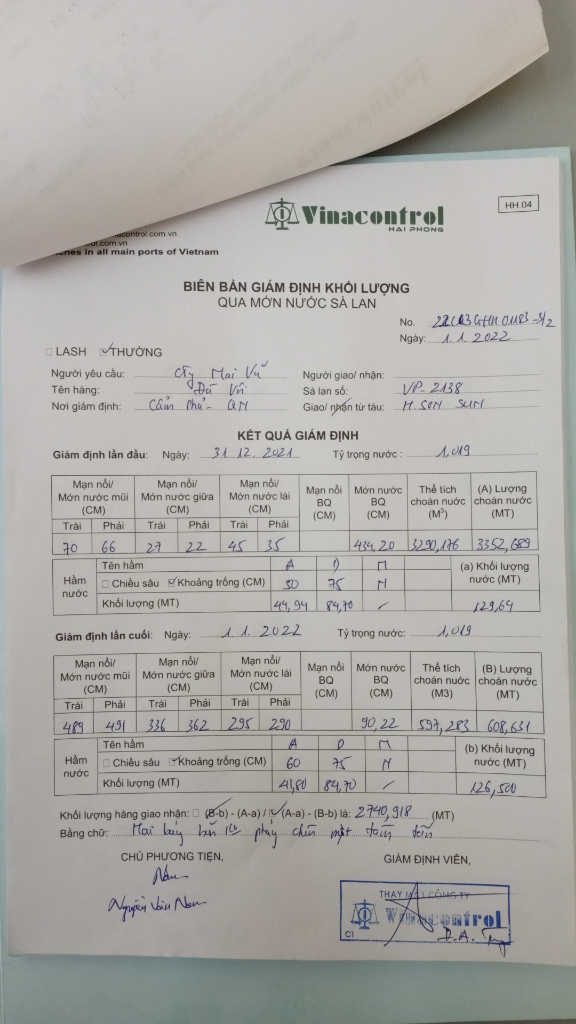 Vinacontrol
HAI PHONG
HH.04
nacontrol.com.vn
ol.com.vn
ches in all main ports of Vietnam
BIÊN BẢN GIÁM ĐỊNH KHỐI LƯỢNG
QUA MỚN NƯỚC SÀ LAN
No.
Ngày: 1.1.2022
LASH THƯỜNG
Người yêu cầu: Cty Mai Vũ Người giao/ nhận:
Tên hàng: Đá Vôi Sà lan số: VP-2138
Nơi giám định: Cẩm Phả - QN Giao/ nhận từ tàu: M.SON SUM
KẾT QUẢ GIÁM ĐỊNH
Giám định lần đầu: Ngày: 31 12. 2021 Tỷ trọng nước: 1,019
Mạn nổi/ Mớn nước mũi (CM) Mạn nổi/ Mớn nước giữa (CM) Mạn nổi/ Mớn nước lái (CM) Mạn nổi BQ (CM) Mớn nước BQ (CM) Thể tích choán nước (M³) (A) Lượng choán nước (MT)
Trái Phải Trái Phải Trái Phải
70 66 27 22 45 35 434,20 3290,176 3352,689
Hầm nước Tên hầm A D M (a) Khối lượng nước (MT)
Chiều sâu Khoảng trống (CM) 50 75 N
Khối lượng (MT) 44,94 84,70 129,64
Giám định lần cuối: Ngày: 1.1.2022 Tỷ trọng nước: 1,019
Mạn nổi/ Mớn nước mũi (CM) Mạn nổi/ Mớn nước giữa (CM) Mạn nổi/ Mớn nước lái (CM) Mạn nổi BQ (CM) Mớn nước BQ (CM) Thể tích choán nước (M3) (B) Lượng choán nước (MT)
Trái Phải Trái Phải Trái Phải
489 491 336 362 295 290 90,22 597,283 608,631
Hầm nước Tên hầm A D M (b) Khối lượng nước (MT)
Chiều sâu Khoảng trống (CM) 60 75 N
Khối lượng (MT) 41,80 84,70 126,500
Khối lượng hàng giao nhận: (B-b) - (A-a) / (A-a) - (B-b) là: 2740,918 (MT)
Bằng chữ: Hai bảy bốn phẩy chín một tám tấn
CHỦ PHƯƠNG TIỆN, GIÁM ĐỊNH VIÊN,
Nam
Nguyễn Văn Nam
THAY MẶT CÔNG TY
Vinacontrol
CI